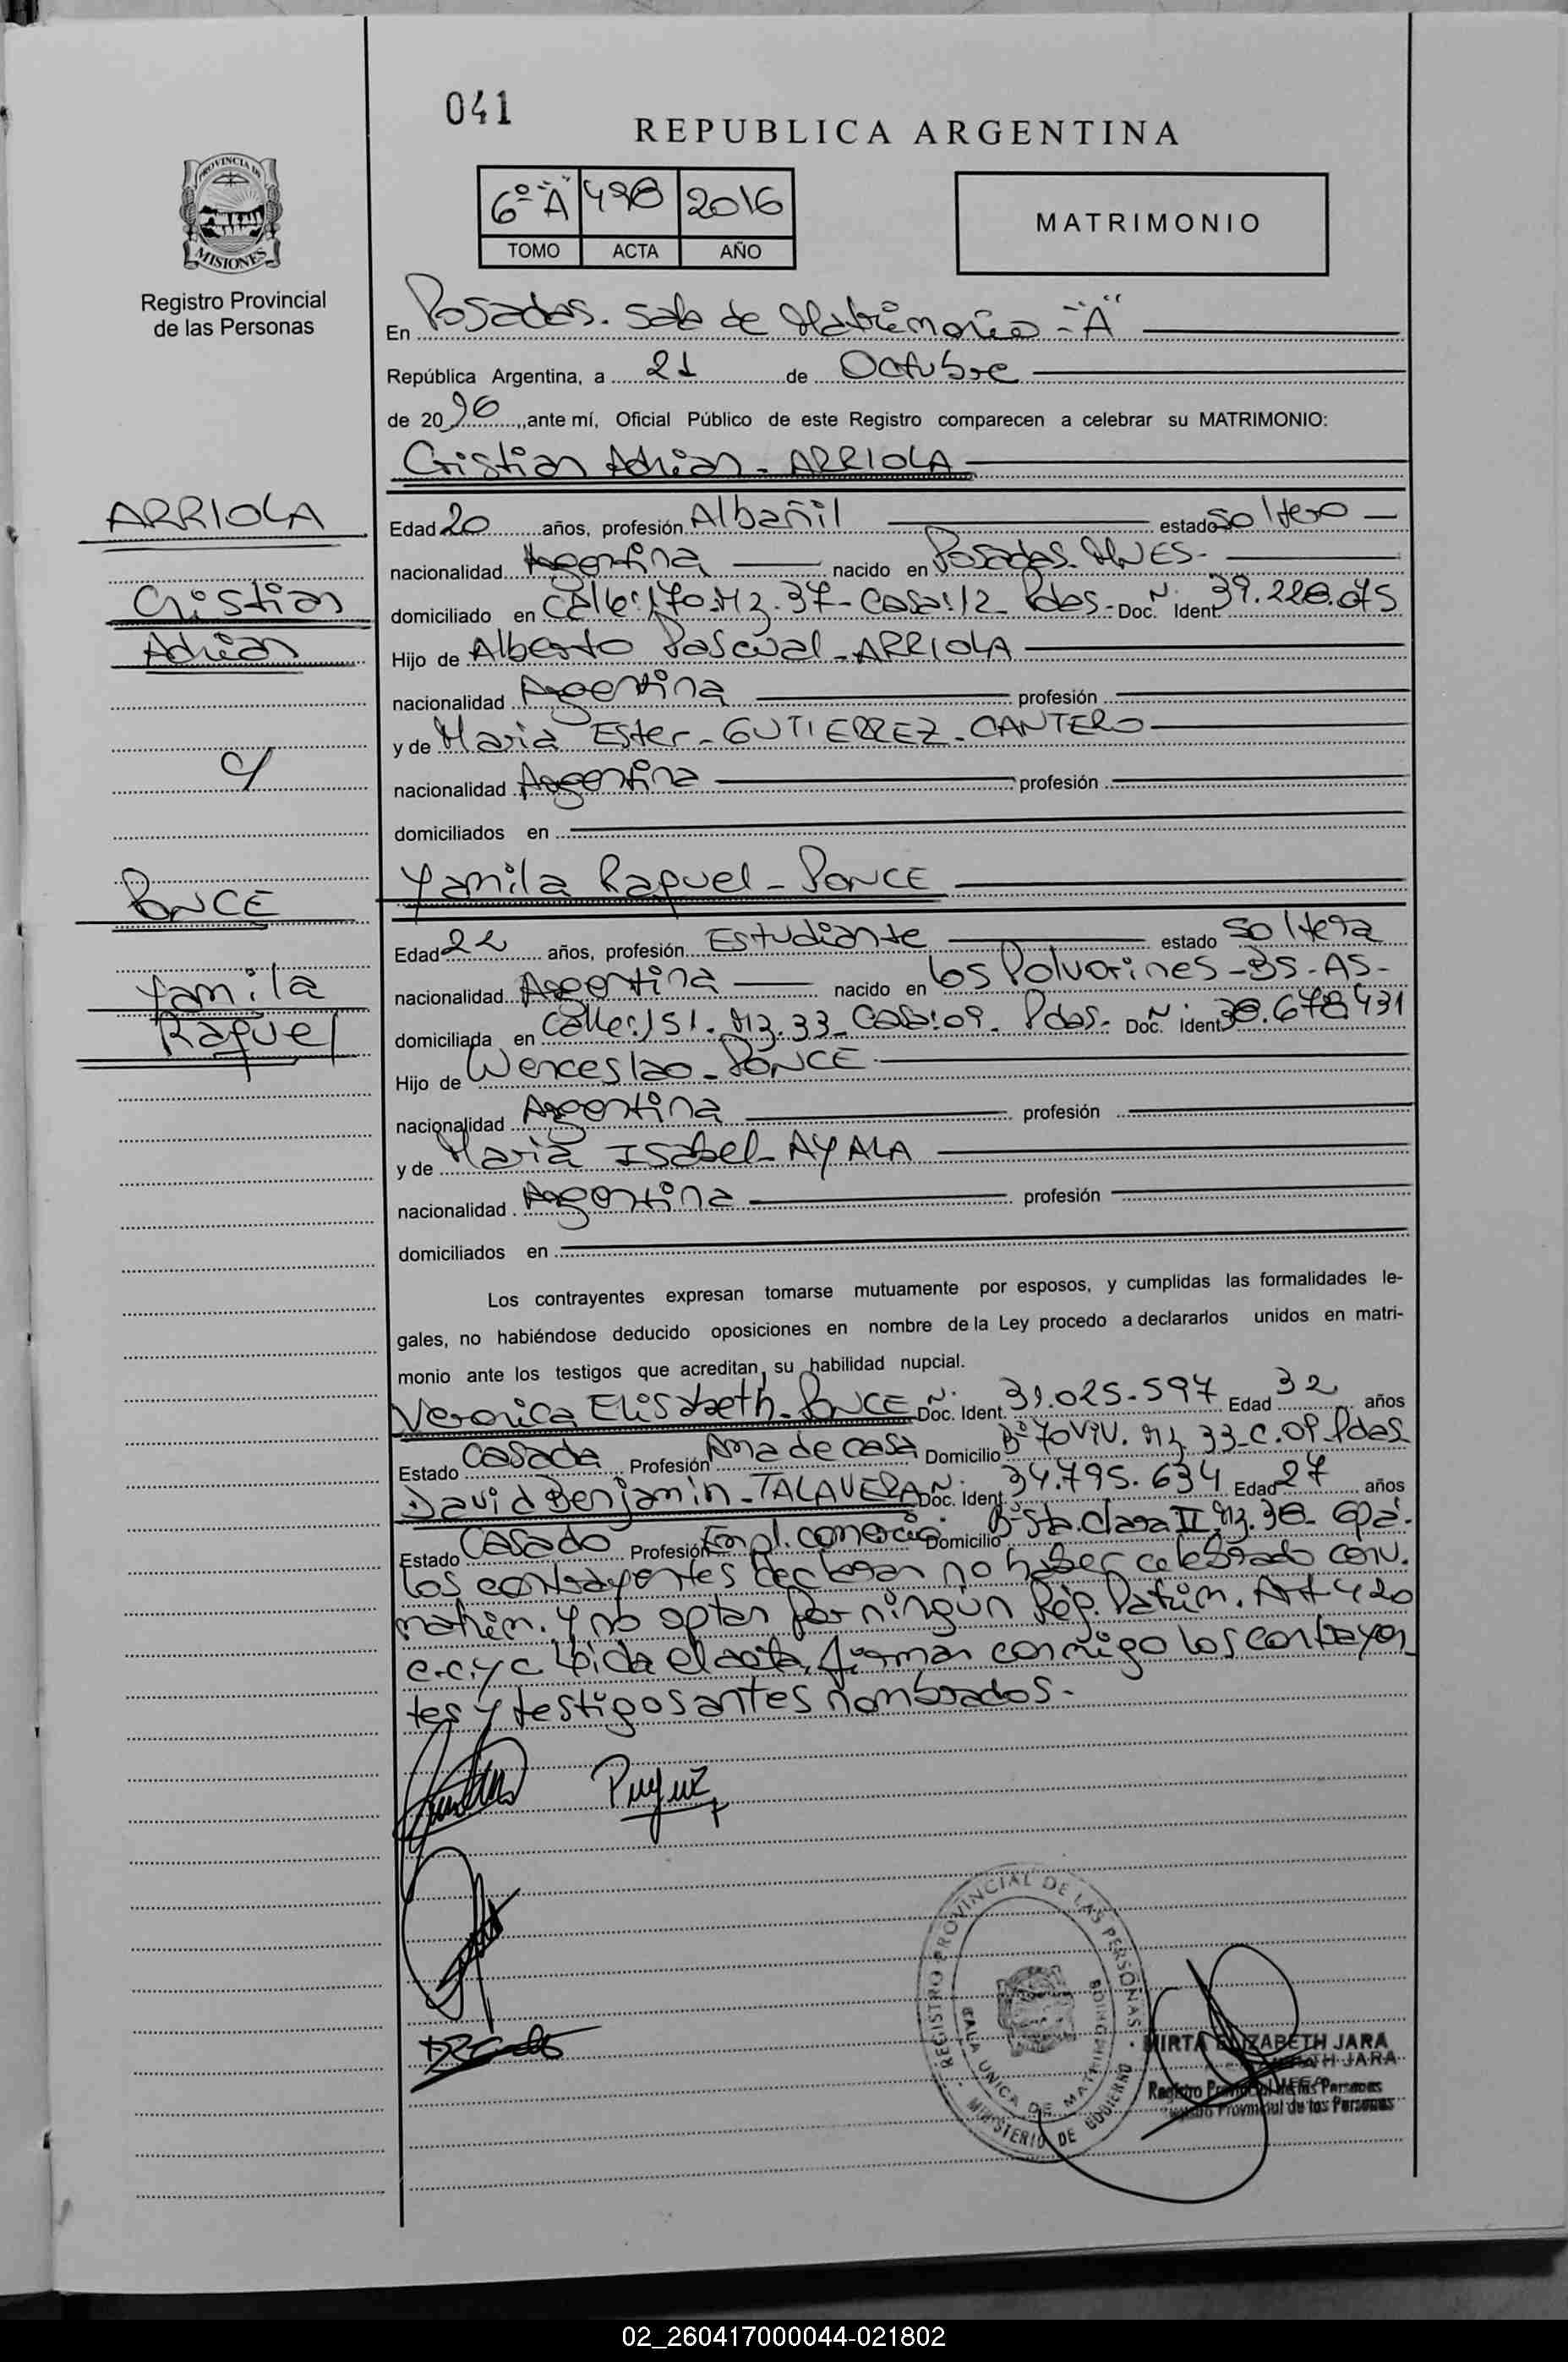 041
REPUBLICA ARGENTINA
6º "A" 498 2016
TOMO ACTA AÑO
MATRIMONIO
PROVINCIA DE
MISIONES
Registro Provincial
de las Personas
En Posadas. Sala de Matrimonio - "A"
República Argentina, a 21 de Octubre
de 2016, ante mí, Oficial Público de este Registro comparecen a celebrar su MATRIMONIO:
Cristian Adrian - ARRIOLA
ARRIOLA
Cristian
Adrian
c/
PONCE
Yamila
Raquel
Edad 20 años, profesión Albañil estado soltero
nacionalidad Argentina nacido en Posadas. MNES-
domiciliado en Calle: 170. Mz. 37- Casa: 12 Pdas- Doc. Ident. Nº: 39.228.075
Hijo de Alberto Pascual - ARRIOLA
nacionalidad Argentina profesión
y de Maria Ester - GUTIERREZ - CANTERO
nacionalidad Argentina profesión
domiciliados en
Yamila Raquel - PONCE
Edad 22 años, profesión Estudiante estado soltera
nacionalidad Argentina nacido en Los Polvorines - BS - AS -
domiciliada en Calle: 151. Mz. 33- Casa: 09. Pdas- Doc. Ident. Nº: 38.678431
Hijo de Wenceslao - PONCE
nacionalidad Argentina profesión
y de Maria Isabel - AYALA
nacionalidad Argentina profesión
domiciliados en
Los contrayentes expresan tomarse mutuamente por esposos, y cumplidas las formalidades le-
gales, no habiéndose deducido oposiciones en nombre de la Ley procedo a declararlos unidos en matri-
monio ante los testigos que acreditan su habilidad nupcial.
Veronica Elisabeth - PONCE Doc. Ident. Nº: 31.025.597 Edad 32 años
Estado Casada Profesión Ama de casa Domicilio Bº 70 Viv. Mz 33-C.09 Pdas
David Benjamin - TALAVERA Doc. Ident. Nº: 34.795.634 Edad 27 años
Estado Casado Profesión Empl. comercio Domicilio Bº Sta. Clara II Mz. 38- Gpá.
Los contrayentes declaran no haber celebrado conv.
matrim. y no optan por ningún Rég. Patrim. Art 420
c.c.y c Leida el acta, firman conmigo los contrayen
tes y testigos antes nombrados.-
REGISTRO PROVINCIAL DE LAS PERSONAS
SALA UNICA DE MATRIMONIOS
MINISTERIO DE GOBIERNO
MIRTA ELIZABETH JARA
JEFA
Registro Provincial de las Personas
02_260417000044-021802